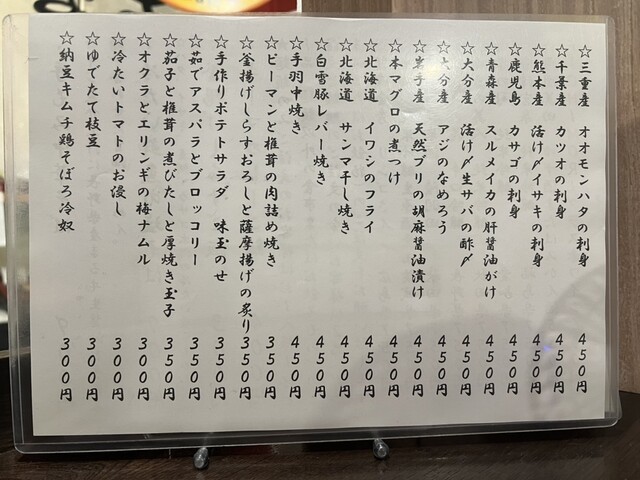 ☆三重産　オオモンハタの刺身　４５０円
☆千葉産　カツオの刺身　４５０円
☆熊本産　活け〆イサキの刺身　４５０円
☆鹿児島　カサゴの刺身　４５０円
☆青森産　スルメイカの肝醤油がけ　４５０円
☆大分産　活け〆生サバの酢〆　４５０円
☆大分産　アジのなめろう　４５０円
☆岩手産　天然ブリの胡麻醤油漬け　４５０円
☆本マグロの煮つけ　４５０円
☆北海道　イワシのフライ　４５０円
☆北海道　サンマ干し焼き　４５０円
☆白雪豚レバー焼き　４５０円
☆手羽中焼き　４５０円
☆ピーマンと椎茸の肉詰め焼き　３５０円
☆釜揚げしらすおろしと薩摩揚げの炙り　３５０円
☆手作りポテトサラダ　味玉のせ　３５０円
☆茹でアスパラとブロッコリー　３５０円
☆茄子と椎茸の煮びたしと厚焼き玉子　３５０円
☆オクラとエリンギの梅ナムル　３００円
☆冷たいトマトのお浸し　３００円
☆ゆでたて枝豆　３００円
☆納豆キムチ鶏そぼろ冷奴　３００円